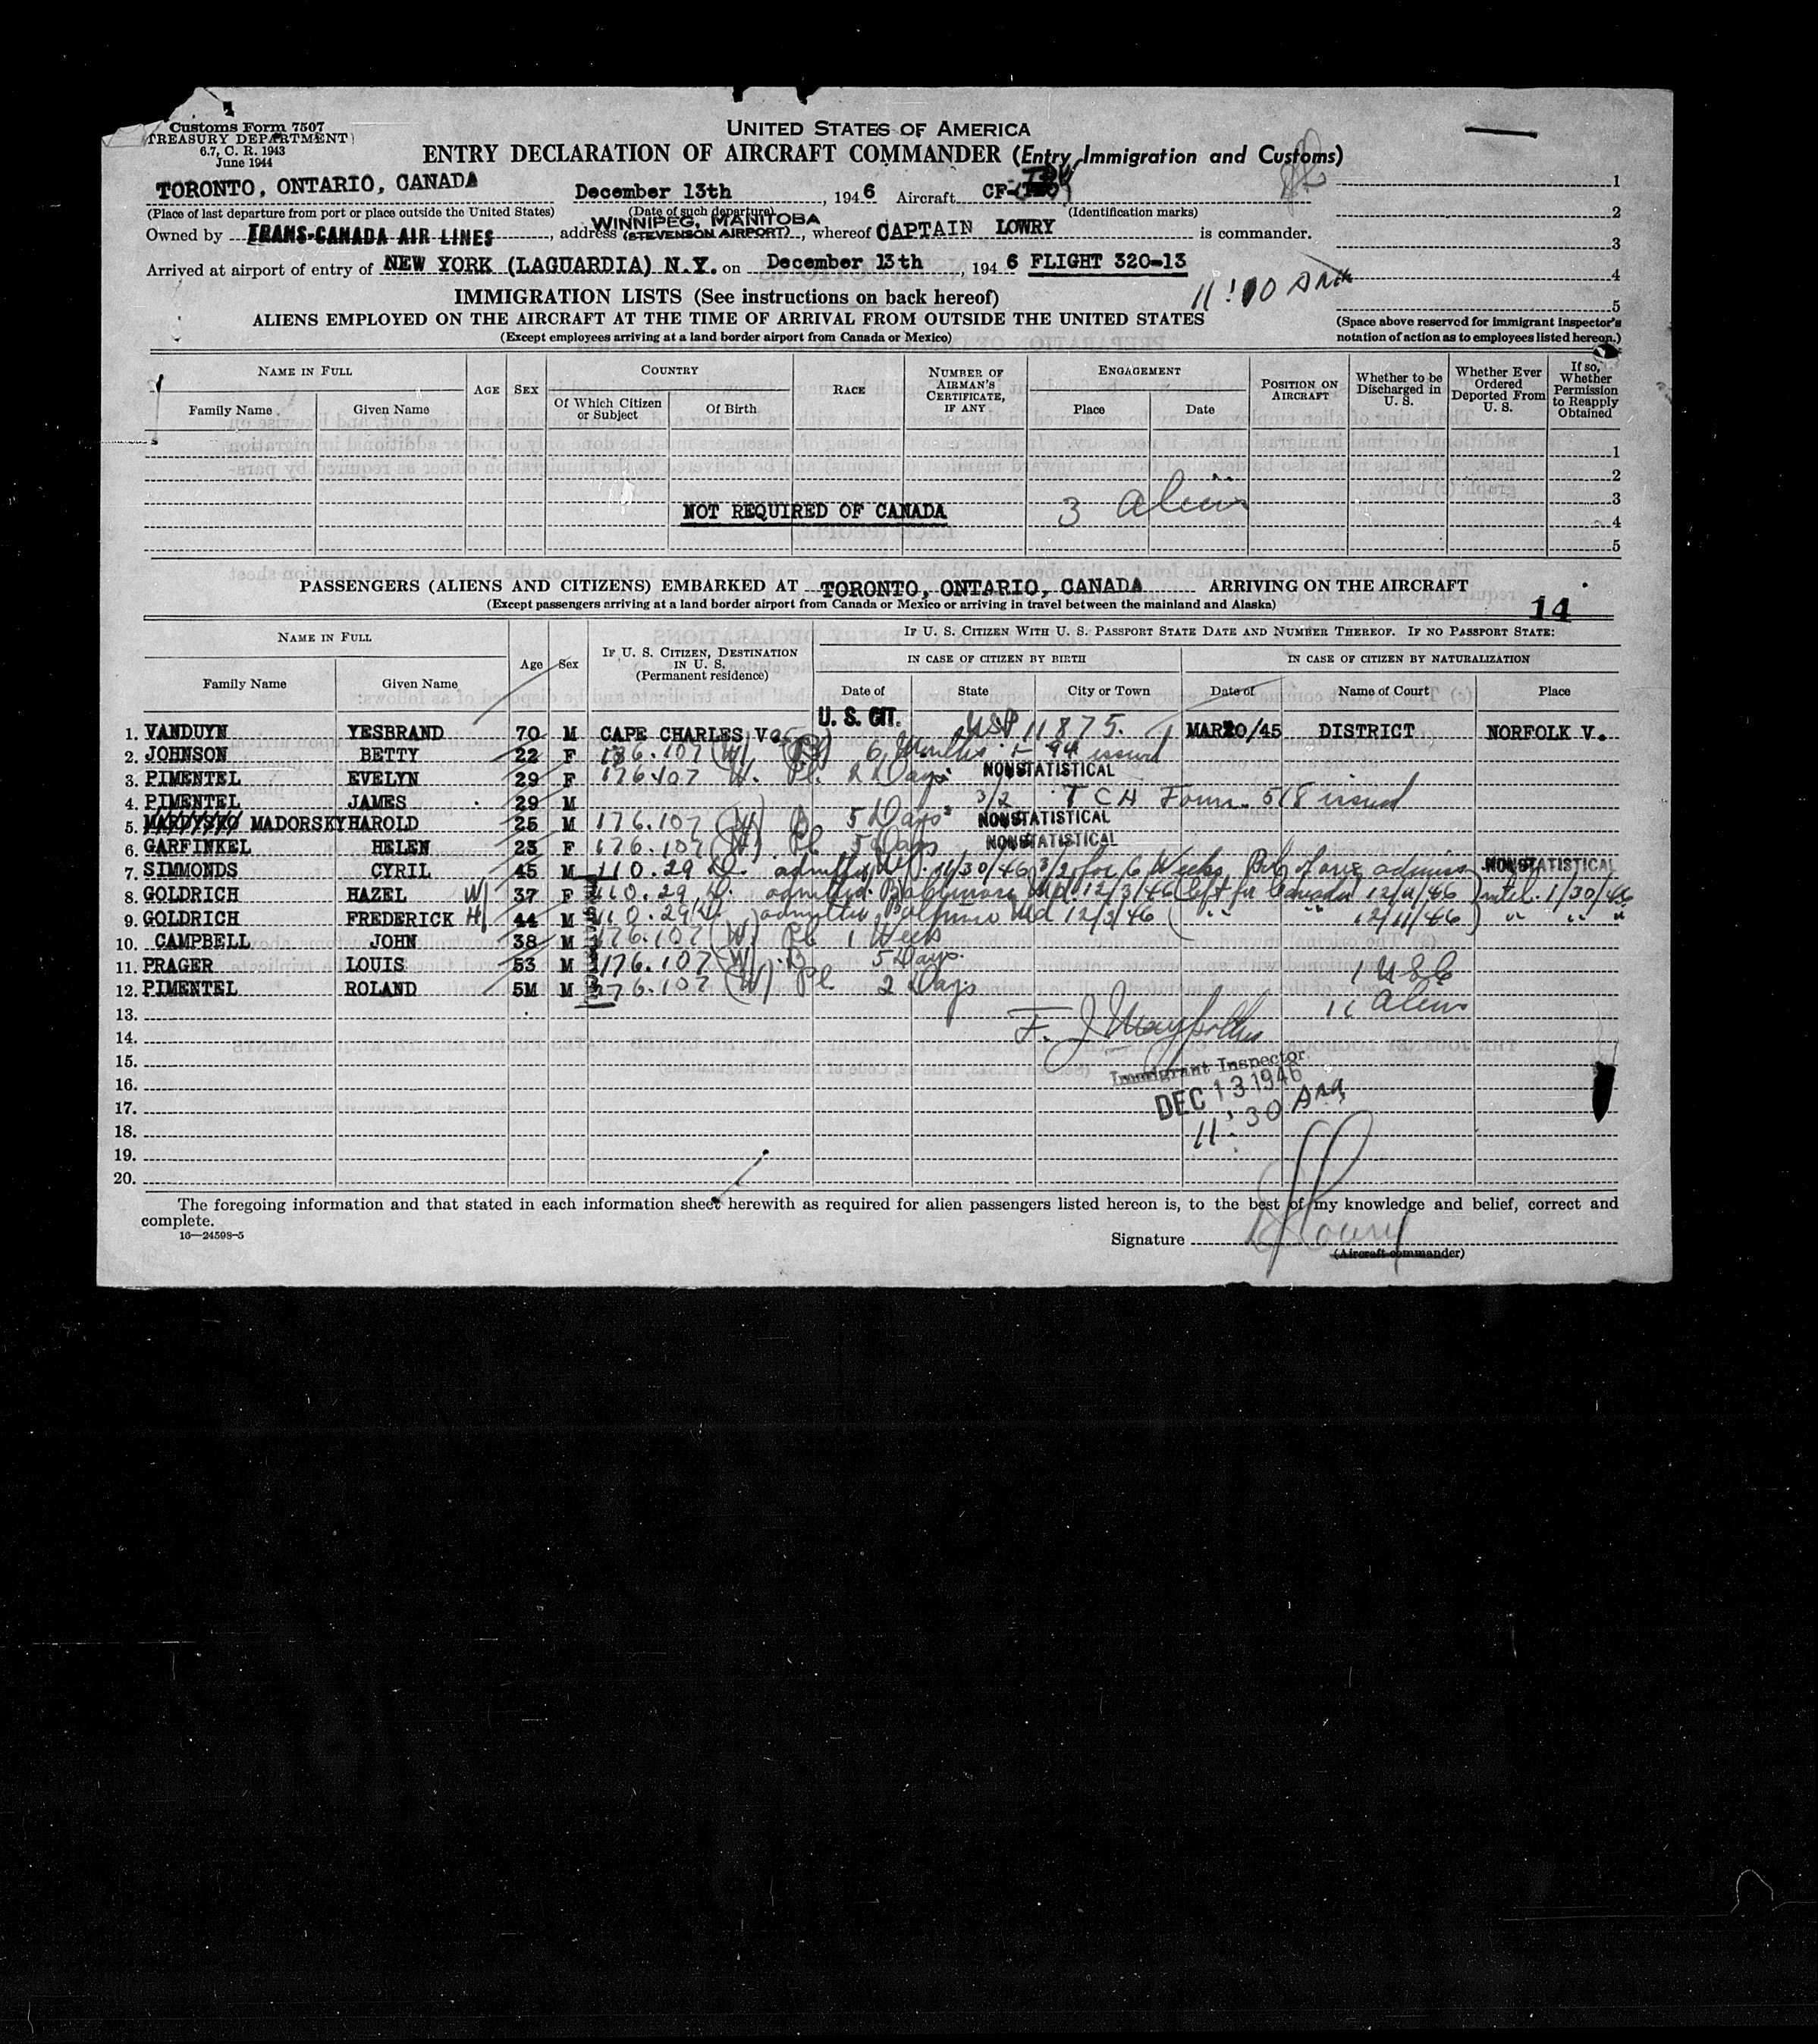 Customs Form 7507
TREASURY DEPARTMENT
6.7, C. R. 1943
June 1944
UNITED STATES OF AMERICA
ENTRY DECLARATION OF AIRCRAFT COMMANDER (Entry, Immigration and Customs)
TORONTO, ONTARIO, CANADA December 13th, 1946 Aircraft CF-
(Place of last departure from port or place outside the United States) (Date of such departure) (Identification marks)
Owned by TRANS-CANADA AIR LINES, address WINNIPEG, MANITOBA (STEVENSON AIRPORT), whereof CAPTAIN LOWRY is commander.
Arrived at airport of entry of NEW YORK (LAGUARDIA) N.Y. on December 13th, 1946 FLIGHT 320-13
11:10 AM
1
2
3
4
5
(Space above reserved for immigrant inspector's notation of action as to employees listed hereon.)
IMMIGRATION LISTS (See instructions on back hereof)
ALIENS EMPLOYED ON THE AIRCRAFT AT THE TIME OF ARRIVAL FROM OUTSIDE THE UNITED STATES
(Except employees arriving at a land border airport from Canada or Mexico)
NAME IN FULL
Family Name Given Name
AGE SEX
COUNTRY
Of Which Citizen or Subject Of Birth
RACE
NUMBER OF AIRMAN'S CERTIFICATE, IF ANY
ENGAGEMENT
Place Date
POSITION ON AIRCRAFT
Whether to be Discharged in U. S.
Whether Ever Ordered Deported From U. S.
If so, Whether Permission to Reapply Obtained
1
2
3
4
5
NOT REQUIRED OF CANADA 3 aliens
PASSENGERS (ALIENS AND CITIZENS) EMBARKED AT TORONTO, ONTARIO, CANADA ARRIVING ON THE AIRCRAFT
(Except passengers arriving at a land border airport from Canada or Mexico or arriving in travel between the mainland and Alaska)
14
NAME IN FULL
Family Name Given Name
Age Sex
IF U. S. CITIZEN, DESTINATION IN U. S.
(Permanent residence)
IF U. S. CITIZEN WITH U. S. PASSPORT STATE DATE AND NUMBER THEREOF. IF NO PASSPORT STATE:
IN CASE OF CITIZEN BY BIRTH IN CASE OF CITIZEN BY NATURALIZATION
Date of State City or Town Date of Name of Court Place
1. VANDUYN YESBRAND 70 M CAPE CHARLES V. U. S. CIT. USP 11875. MAR20/45 DISTRICT NORFOLK V.
2. JOHNSON BETTY 22 F 136.107 (W) 6 Months I-94 issued
3. PIMENTEL EVELYN 29 F 176.107 W. Pl. 2 Days NONSTATISTICAL
4. PIMENTEL JAMES 29 M 3/2 T C H Form 518 issued
5. MADORSKY HAROLD 25 M 176.107 (W) B 5 Days NONSTATISTICAL
6. GARFINKEL HELEN 23 F 176.107 (W) Pl 5 Days NONSTATISTICAL
7. SIMMONDS CYRIL 45 M 110.29 D. admitted 11/30/46 3/2 for 6 Weeks NONSTATISTICAL
8. GOLDRICH HAZEL W 37 F 110.29 D. admitted Baltimore Md. 12/3/46 (left for Canada 12/11/46) until 1/30/46
9. GOLDRICH FREDERICK H 44 M 110.29 D. admitted Baltimore Md 12/3/46 ( " " 12/11/46) " " "
10. CAMPBELL JOHN 38 M 176.107 (W) Pl 1 Week
11. PRAGER LOUIS 53 M 176.107 (W) B 5 Days.
12. PIMENTEL ROLAND 5M M 176.107 (W) Pl 2 Days
1 USC
11 aliens
13.
14.
15.
16.
17.
18.
19.
20.
Immigrant Inspector
DEC 13 1946
11:30 AM
The foregoing information and that stated in each information sheet herewith as required for alien passengers listed hereon is, to the best of my knowledge and belief, correct and
complete.
16—24598-5
Signature Lowry
(Aircraft commander)